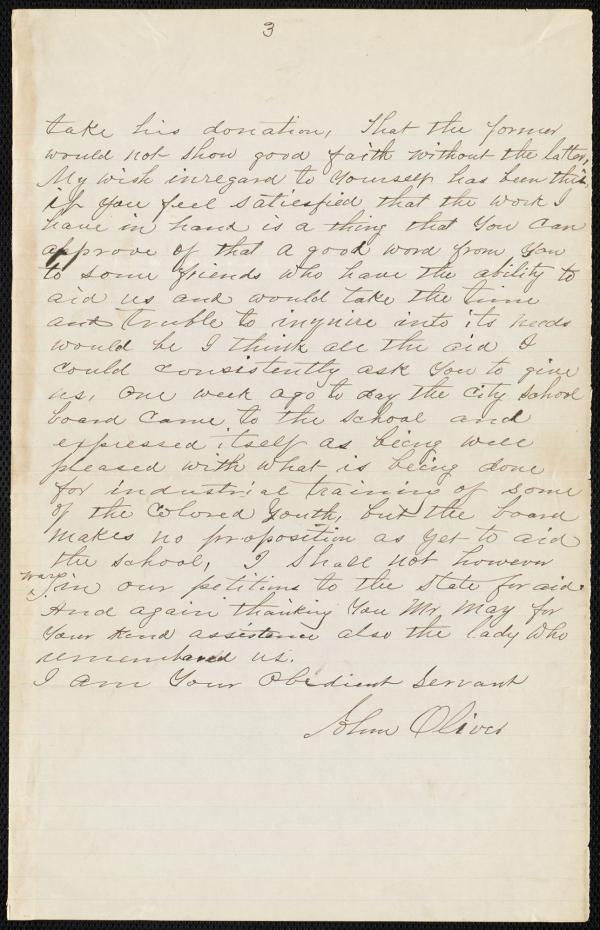 3
take his donation, That the former
would not show good faith without the latter,
My wish inregard to Yourself has been this
if you feel satiesfied that the work I
have in hand is a thing that You can
approve of that a good word from You
to some friends who have the ability to
aid us and would take the time
and truble to inquire into its needs
would be I think all the aid I
could consistently ask You to give
us, One week ago to day the city school
board came to the school and
expressed itself as being well
pleased with what is being done
for industrial training of some
of the Colored Youth, but the board
makes no proposition as yet to aid
the school, I shall not however
in our petitions to the State for aid.
And again thanking You Mr May for
Your Kind assistance also the lady who
remembered us.
I am Your Obedient Servant
John Oliver